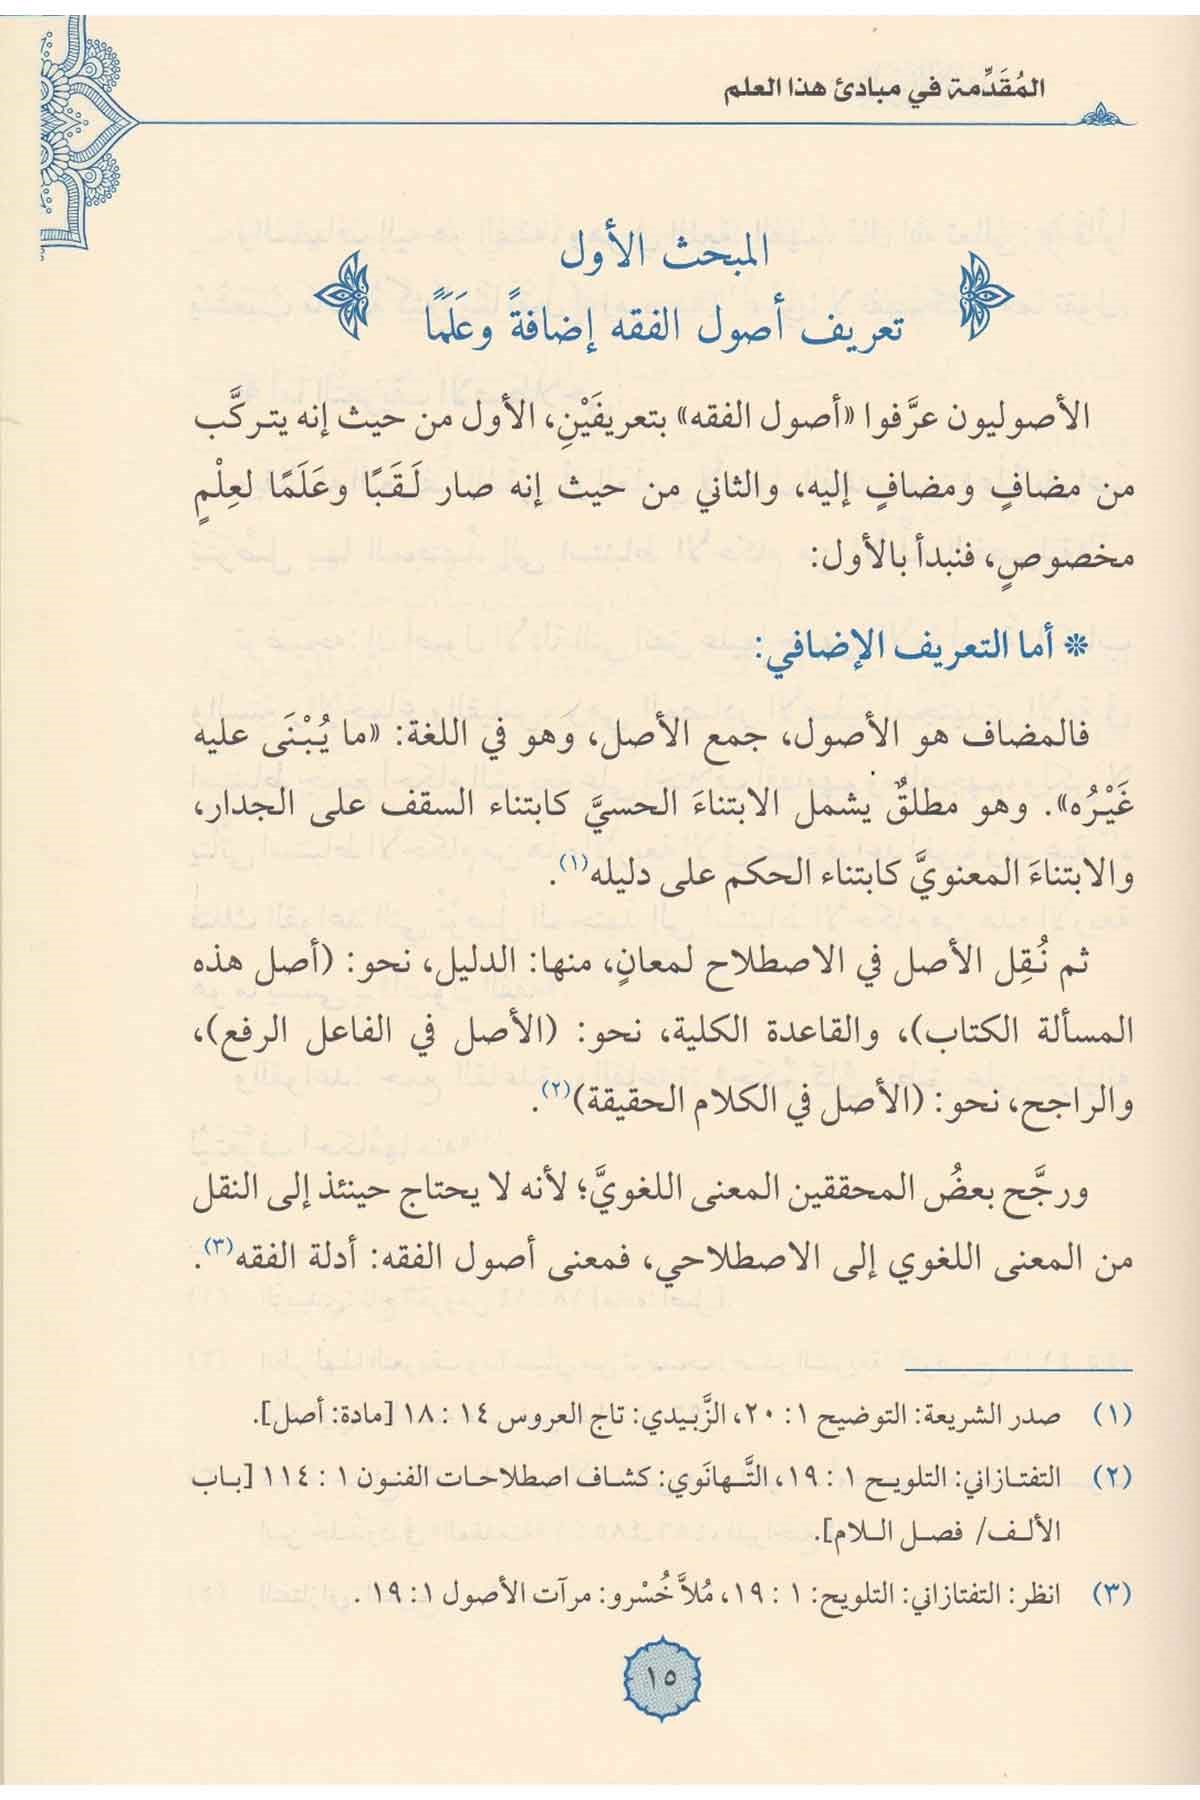 المُقَدِّمة في مبادئ هذا العلم
المبحث الأول
تعريف أصول الفقه إضافةً وعَلَمًا
الأصوليون عرَّفوا «أصول الفقه» بتعريفَيْنِ، الأول من حيث إنه يتركَّب
من مضافٍ ومضافٍ إليه، والثاني من حيث إنه صار لَـقَـبًا وعَلَمًا لعِلْمٍ
مخصوصٍ، فنبدأ بالأول:
* أما التعريف الإضافي:
فالمضاف هو الأصول، جمع الأصل، وَهو في اللغة: «ما يُبْنَى عليه
غَيْرُه». وهو مطلقٌ يشمل الابتناءَ الحسيَّ كابتناء السقف على الجدار،
والابتناءَ المعنويَّ كابتناء الحكم على دليله(١).
ثم نُقِل الأصل في الاصطلاح لمعانٍ، منها: الدليل، نحو: (أصل هذه
المسألة الكتاب)، والقاعدة الكلية، نحو: (الأصل في الفاعل الرفع)،
والراجح، نحو: (الأصل في الكلام الحقيقة)(٢).
ورجَّح بعضُ المحققين المعنى اللغويَّ؛ لأنه لا يحتاج حينئذ إلى النقل
من المعنى اللغوي إلى الاصطلاحي، فمعنى أصول الفقه: أدلة الفقه(٣).
(١) صدر الشريعة: التوضيح ١: ٢٠، الزَّبيدي: تاج العروس ١٤ : ١٨ [مادة: أصل].
(٢) التفتازاني: التلويح ١ : ١٩، التَّهانَوي: كشاف اصطلاحات الفنون ١ : ١١٤ [باب
الألف/ فصل اللام].
(٣) انظر: التفتازاني: التلويح: ١ : ١٩، مُلاَّ خُسْرو: مرآت الأصول ١: ١٩ .
١٥